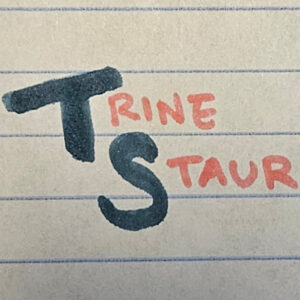 TRINE
STAUR